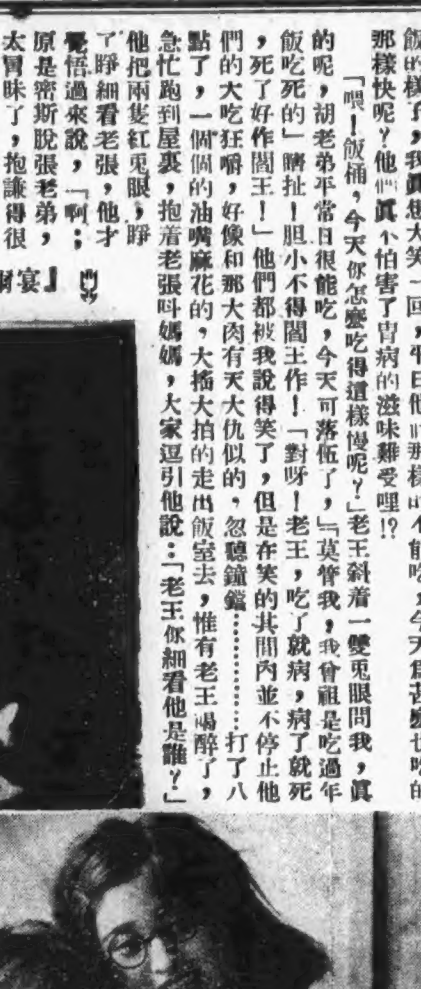 飯的樣子，我眞想大笑一回，平日他們那樣的不能吃，今天爲甚麽也吃的
那樣快呢？他們眞个怕害了胃病的滋味難受哩!?
「喂！飯桶，今天你怎麽吃得這樣慢呢？」老王斜着一雙兎眼問我，眞
的呢，胡老弟平常日很能吃，今天可落伍了，」「莫管我，我曾祖是吃過年
飯吃死的」瞎扯！胆小不得閻王作！「對呀！老王，吃了就病，病了就死
，死了好作閻王！」他們都被我說得笑了，但是在笑的其間內並不停止他
們的大吃狂嚼，好像和那大肉有天大仇似的，忽聽鐘鐺…………打了八
點了，一個個的油嘴麻花的，大搖大拍的走出飯室去，惟有老王喝醉了，
急忙跑到屋裏，抱着老張叫媽媽，大家逗引他說：「老王你細看他是誰？」
他把兩隻紅兎眼，睜
了睜細看老張，他才
覺悟過來說，「啊；
原是密斯脫張老弟，
太冒昧了，抱謙得很
宴』